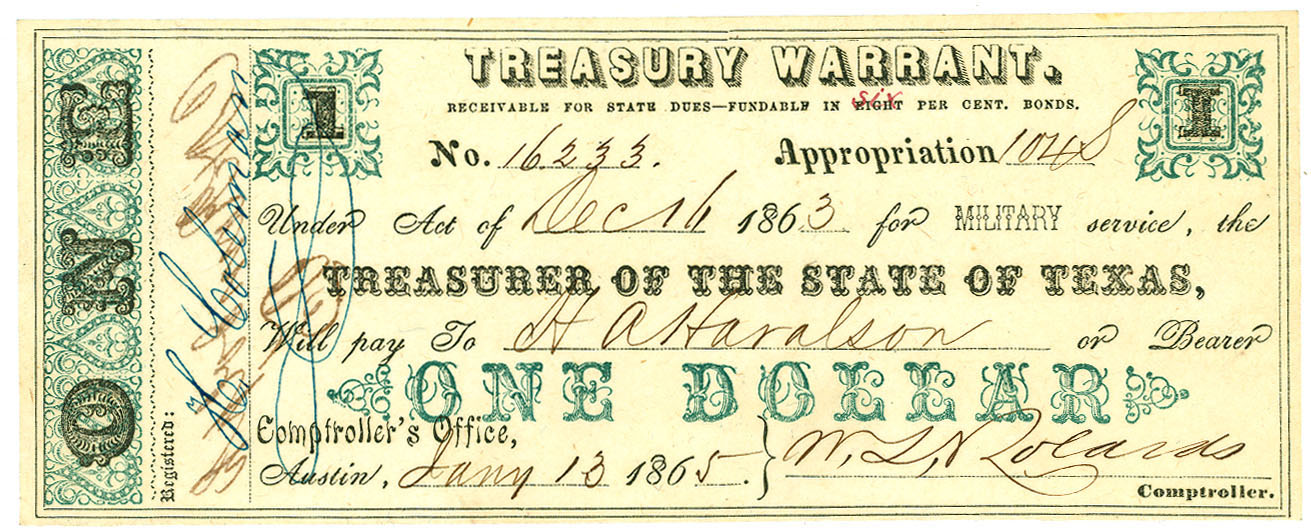 TREASURY WARRANT.
RECEIVABLE FOR STATE DUES—FUNDABLE IN EIGHT six PER CENT. BONDS.
1
1
No. 16233. Appropriation 1048
Under Act of Dec 16 1863 for MILITARY service, the
TREASURER OF THE STATE OF TEXAS,
Will pay To H A Haralson or Bearer
ONE DOLLAR
Comptroller's Office,
Austin, Jany 13 1865.
W. L. Robards
Comptroller.
ONE
Registered: